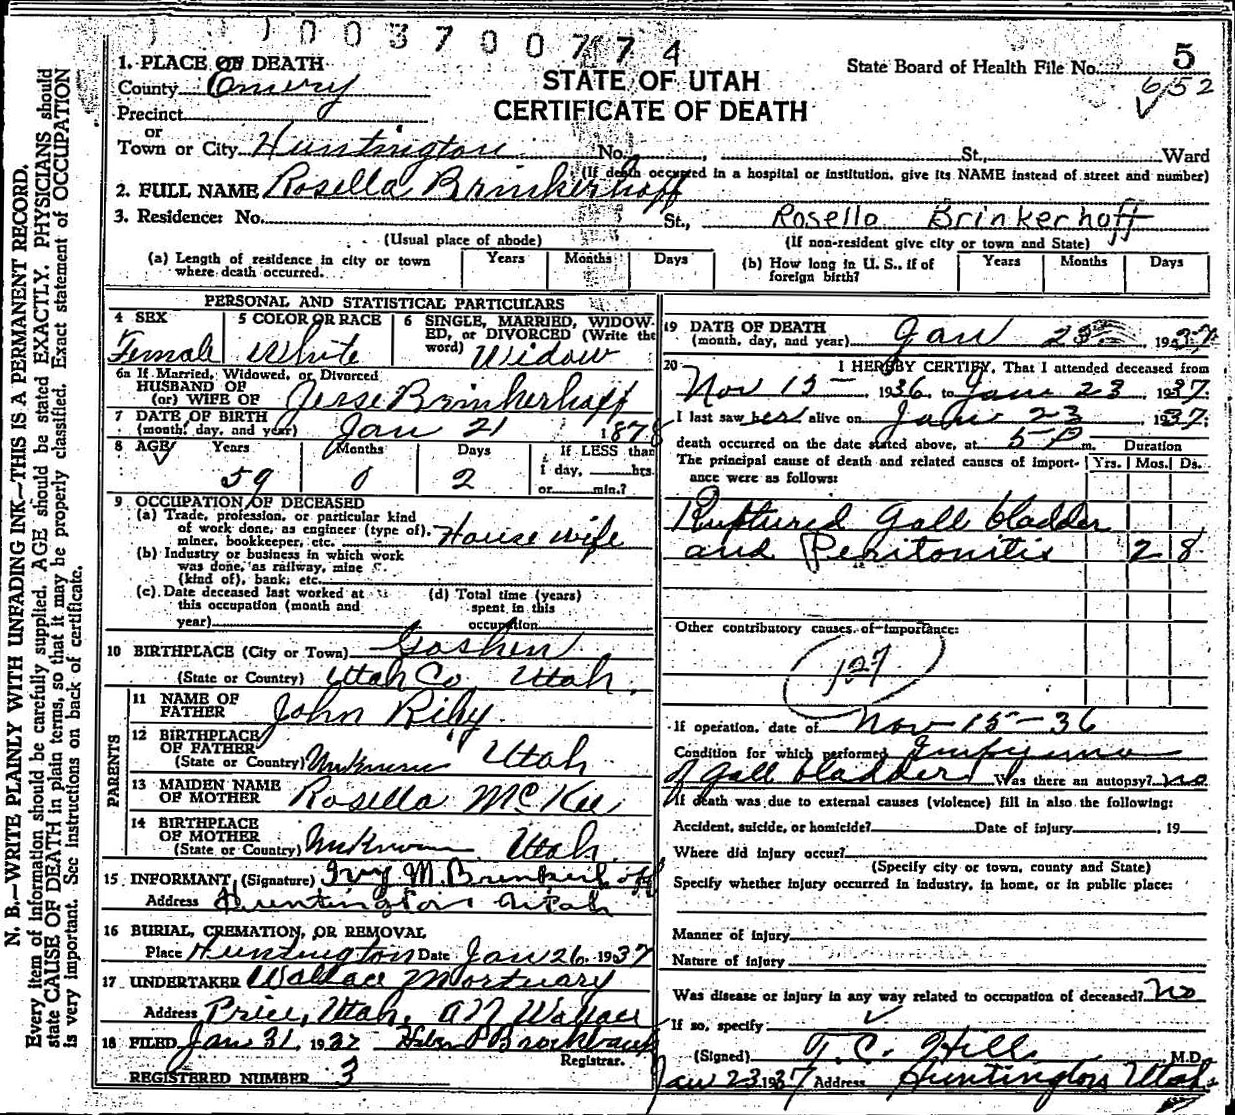 003700774
5
State Board of Health File No.
652
STATE OF UTAH
CERTIFICATE OF DEATH
1. PLACE OF DEATH
County Emery
Precinct
or
Town or City Huntington No. , St., Ward
(If death occurred in a hospital or institution, give its NAME instead of street and number)
2. FULL NAME Rosella Brinkerhoff
3. Residence: No. St., Rosello Brinkerhoff
(Usual place of abode) (If non-resident give city or town and State)
(a) Length of residence in city or town where death occurred. Years Months Days
(b) How long in U. S., if of foreign birth? Years Months Days
PERSONAL AND STATISTICAL PARTICULARS
4 SEX Female
5 COLOR OR RACE White
6 SINGLE, MARRIED, WIDOWED, or DIVORCED (Write the word) Widow
6a If Married, Widowed, or Divorced
HUSBAND OF
(or) WIFE OF Jesse Brinkerhoff
7 DATE OF BIRTH
(month, day, and year) Jan 21 1878
8 AGE Years Months Days If LESS than
1 day, hrs.
59 0 2 or min.?
9 OCCUPATION OF DECEASED
(a) Trade, profession, or particular kind
of work done, as engineer (type of),
miner, bookkeeper, etc. House wife
(b) Industry or business in which work
was done, as railway, mine
(kind of), bank, etc.
(c) Date deceased last worked at
this occupation (month and
year)
(d) Total time (years)
spent in this
occupation
10 BIRTHPLACE (City or Town) Goshen
(State or Country) Utah Co Utah.
PARENTS
11 NAME OF
FATHER John Riley
12 BIRTHPLACE
OF FATHER
(State or Country) Unknown Utah
13 MAIDEN NAME
OF MOTHER Rosella McKee
14 BIRTHPLACE
OF MOTHER
(State or Country) Unknown Utah
15 INFORMANT, (Signature) M. Brinkerhoff
Address Huntington Utah
16 BURIAL, CREMATION, OR REMOVAL
Place Huntington Date Jan 26 1937
17 UNDERTAKER Wallace Mortuary
Address Price, Utah. Wallace
18 FILED Jan 31, 1937
Registrar.
REGISTERED NUMBER 3
19 DATE OF DEATH
(month, day, and year) Jan 23 , 1937
20 I HEREBY CERTIFY, That I attended deceased from
Nov 15 1936, to Jan 23, 1937.
I last saw her alive on Jan 23, 1937.
death occurred on the date stated above, at 5 P m. Duration
The principal cause of death and related causes of importance were as follows: Yrs. Mos. Ds.
Ruptured Gall bladder
and Peritonitis 2 8
Other contributory causes of importance:
127
If operation, date of Nov-15-36
Condition for which performed Empyema
of Gall bladder Was there an autopsy? no
If death was due to external causes (violence) fill in also the following:
Accident, suicide, or homicide? Date of injury , 19
Where did injury occur?
(Specify city or town, county and State)
Specify whether injury occurred in industry, in home, or in public place:
Manner of injury
Nature of injury
Was disease or injury in any way related to occupation of deceased? No
If so, specify
(Signed) T. C. Hill M.D.
Jan 23 1937 Address Huntington Utah
N. B.—WRITE PLAINLY WITH UNFADING INK—THIS IS A PERMANENT RECORD.
Every item of information should be carefully supplied. AGE should be stated EXACTLY. PHYSICIANS should
state CAUSE OF DEATH in plain terms, so that it may be properly classified. Exact statement of OCCUPATION
is very important. See instructions on back of certificate.